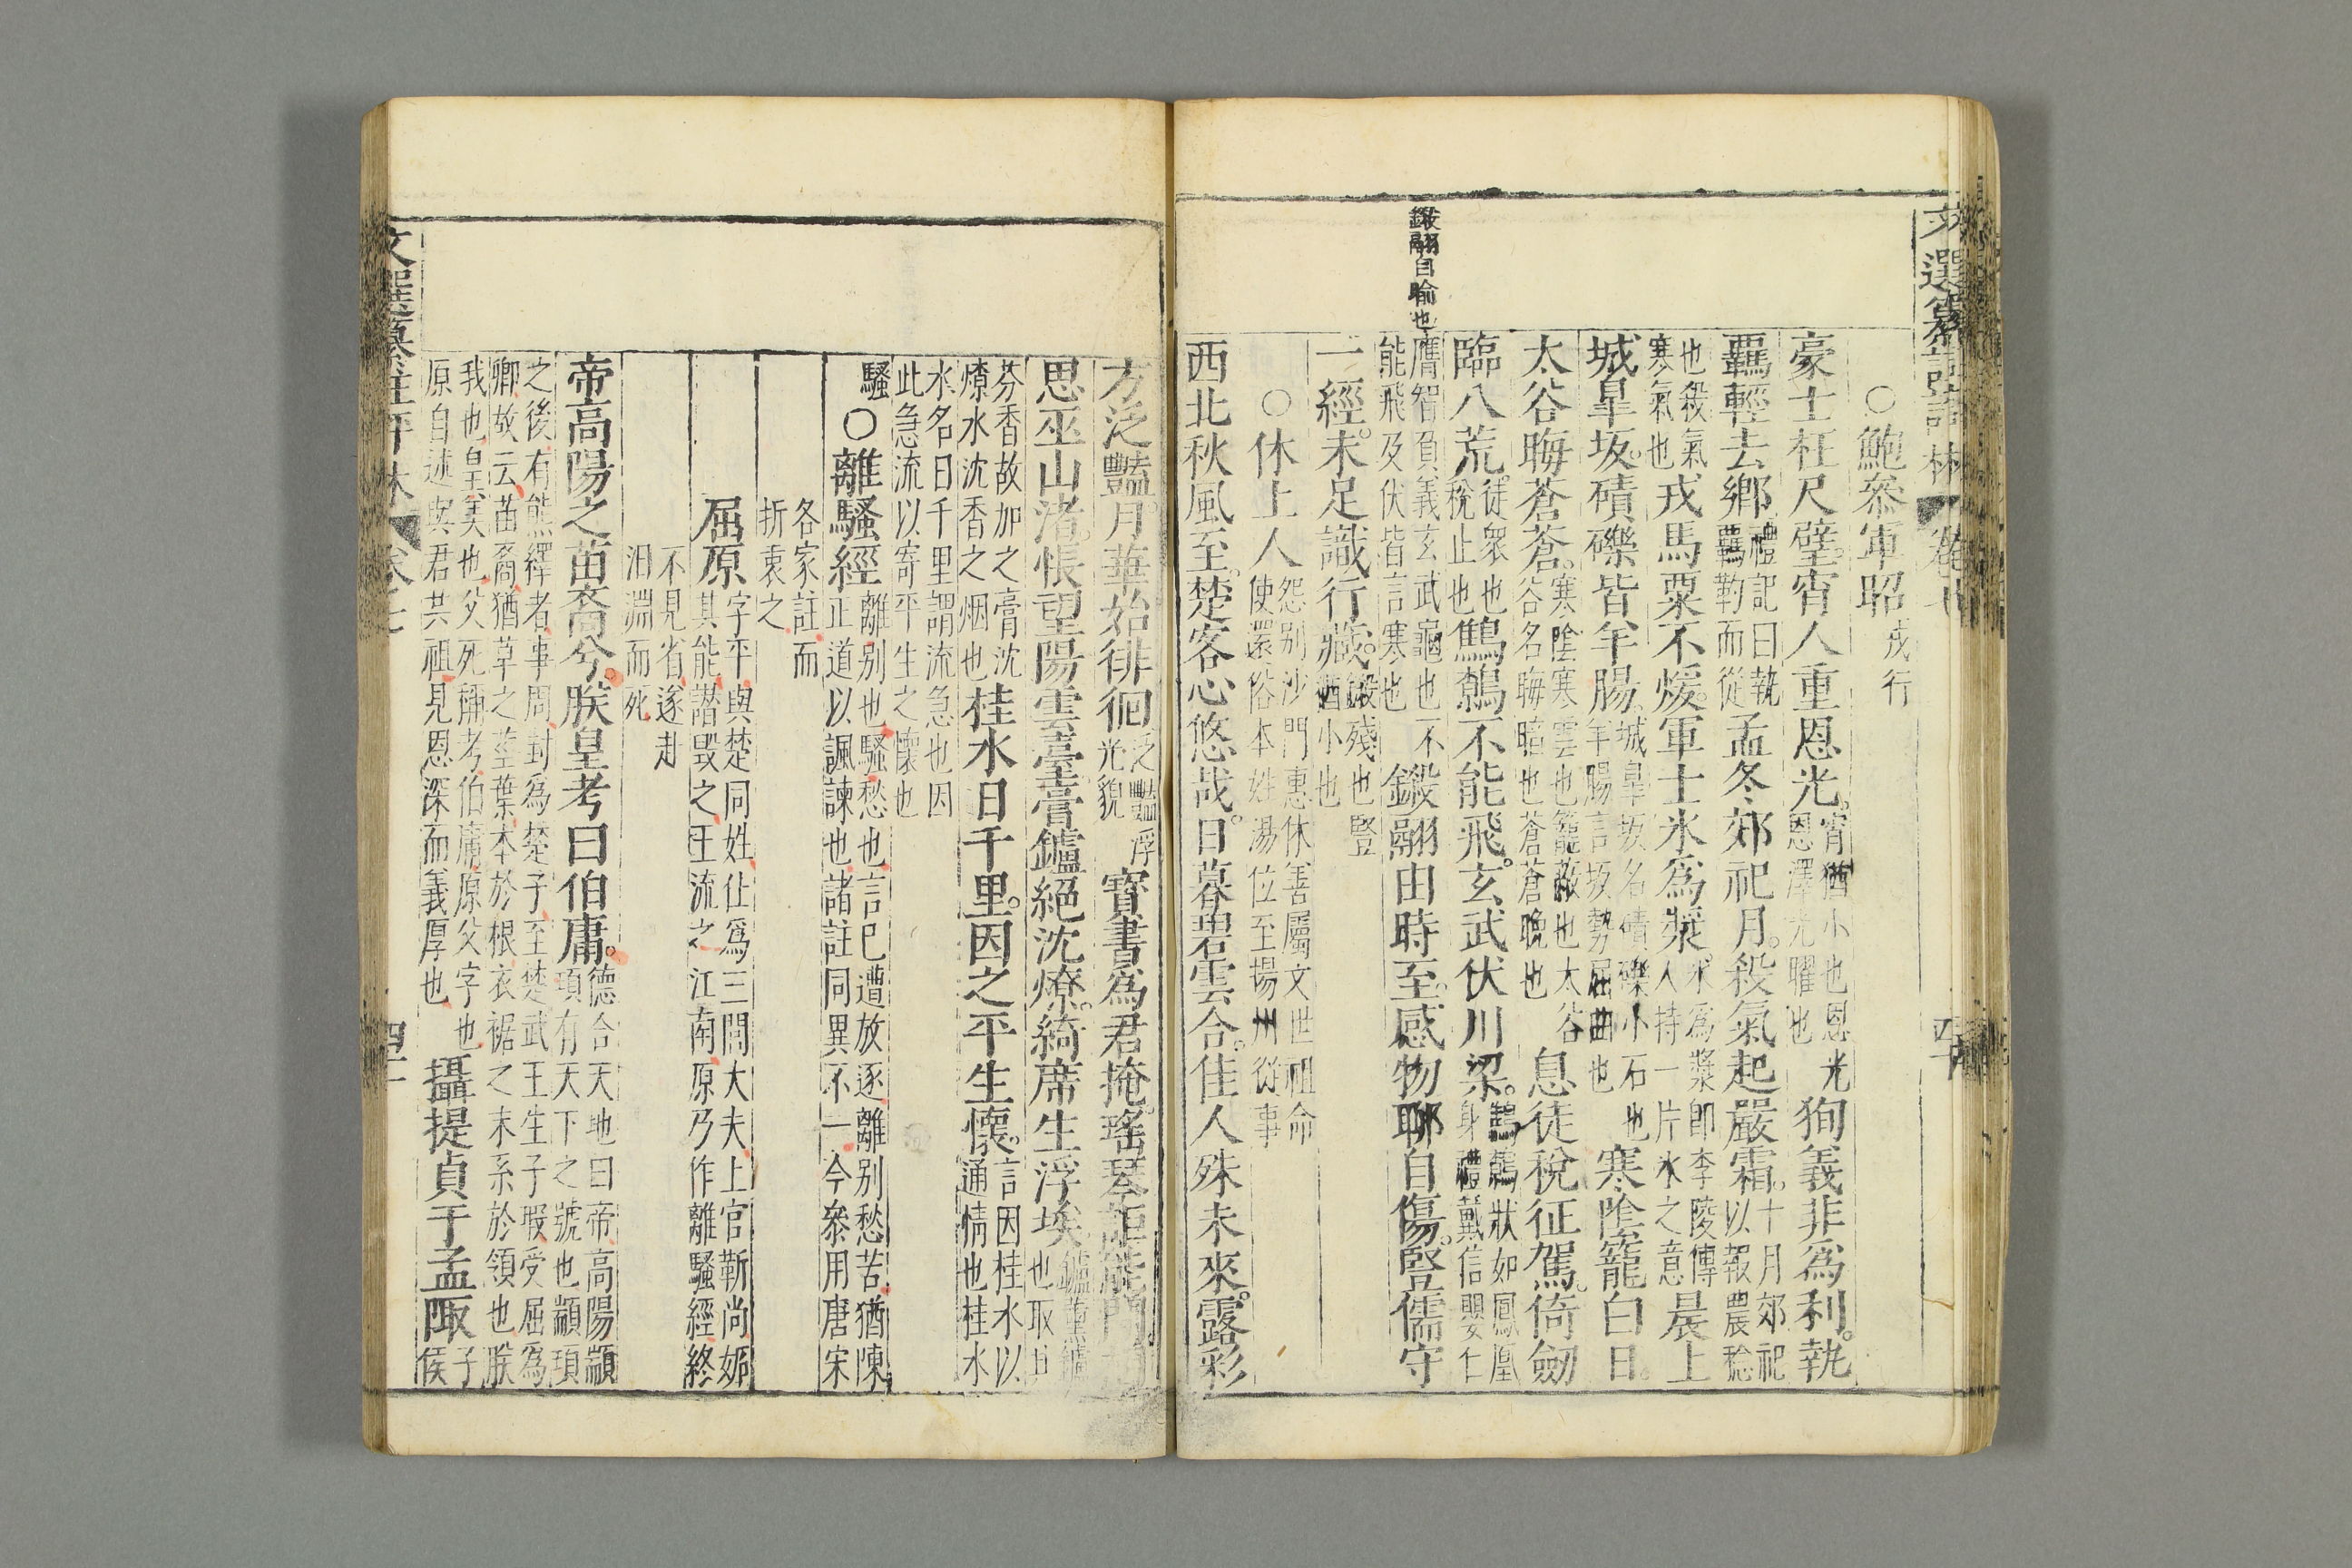 文選纂註評林 卷七
○鮑參軍昭戎行
豪士枉尺璧。宵人重恩光。宵猶小也恩光恩澤光曜也狥義非爲利。執
羈輕去鄉禮記曰執羈勒而從孟冬郊祀月。殺氣起嚴霜。十月郊祀以報農稔
也殺氣寒氣也戎馬粟不煖。軍士氷爲漿。氷爲漿即李陵傳人持一片氷之意晨上
城皐坂。磧礫皆羊腸。城皐坂名磧礫小石也羊腸言坂勢屈曲也寒陰籠白日。
太谷晦蒼蒼。寒陰寒雲也籠蔽也太谷谷名晦暗也蒼蒼晚也息徒稅征駕。倚劒
臨八荒。徒衆也稅止也鷦鵬不能飛。玄武伏川梁。鷦鵬狀如鳳凰身禮戴信嬰仁
膺智負義玄武龜也不能飛及伏皆言寒也鎩翮由時至。感物聊自傷。豎儒守
鎩翮自喻也
一經。未足識行藏。鎩殘也豎猶小也
○休上人怨別沙門惠休善屬文世祖命使還俗本姓湯位至揚州從事
西北秋風至。楚客心悠哉。日暮碧雲合。佳人殊未來。露彩
方泛豔。月華始徘徊泛豔浮光貌寳書爲君掩。瑤琴詎能開。
思巫山渚。悵望陽雲臺膏鑪絕沈燎。綺席生浮埃鑪薰鑪也取其
芬香故加之膏沈燎水沈香之烟也桂水日千里。因之平生懷。言因桂水以通情也桂水
水名日千里謂流急也因此急流以寄平生之懷也
騷○離騷經離別也騷愁也言已遭放逐離別愁苦猶陳正道以諷諫也諸註同異不一今參用唐宋
各家註而折衷之
屈原字平與楚同姓仕爲三閭大夫上官靳尚妬其能譖毀之王流之江南原乃作離騷經終
不見省遂赴汨淵而死
帝高陽之苗裔兮。朕皇考曰伯庸。德合天地曰帝高陽顓頊有天下之號也顓頊
之後有熊繹者事周封爲楚子至楚武王生子瑕受屈爲卿故云苗裔猶草之莖葉本於根衣裾之末系於領也朕
我也皇美也父死稱考伯庸原父字也原自述與君共祖見恩深而義厚也攝提貞于孟陬
文選纂註評林 卷七 四十一